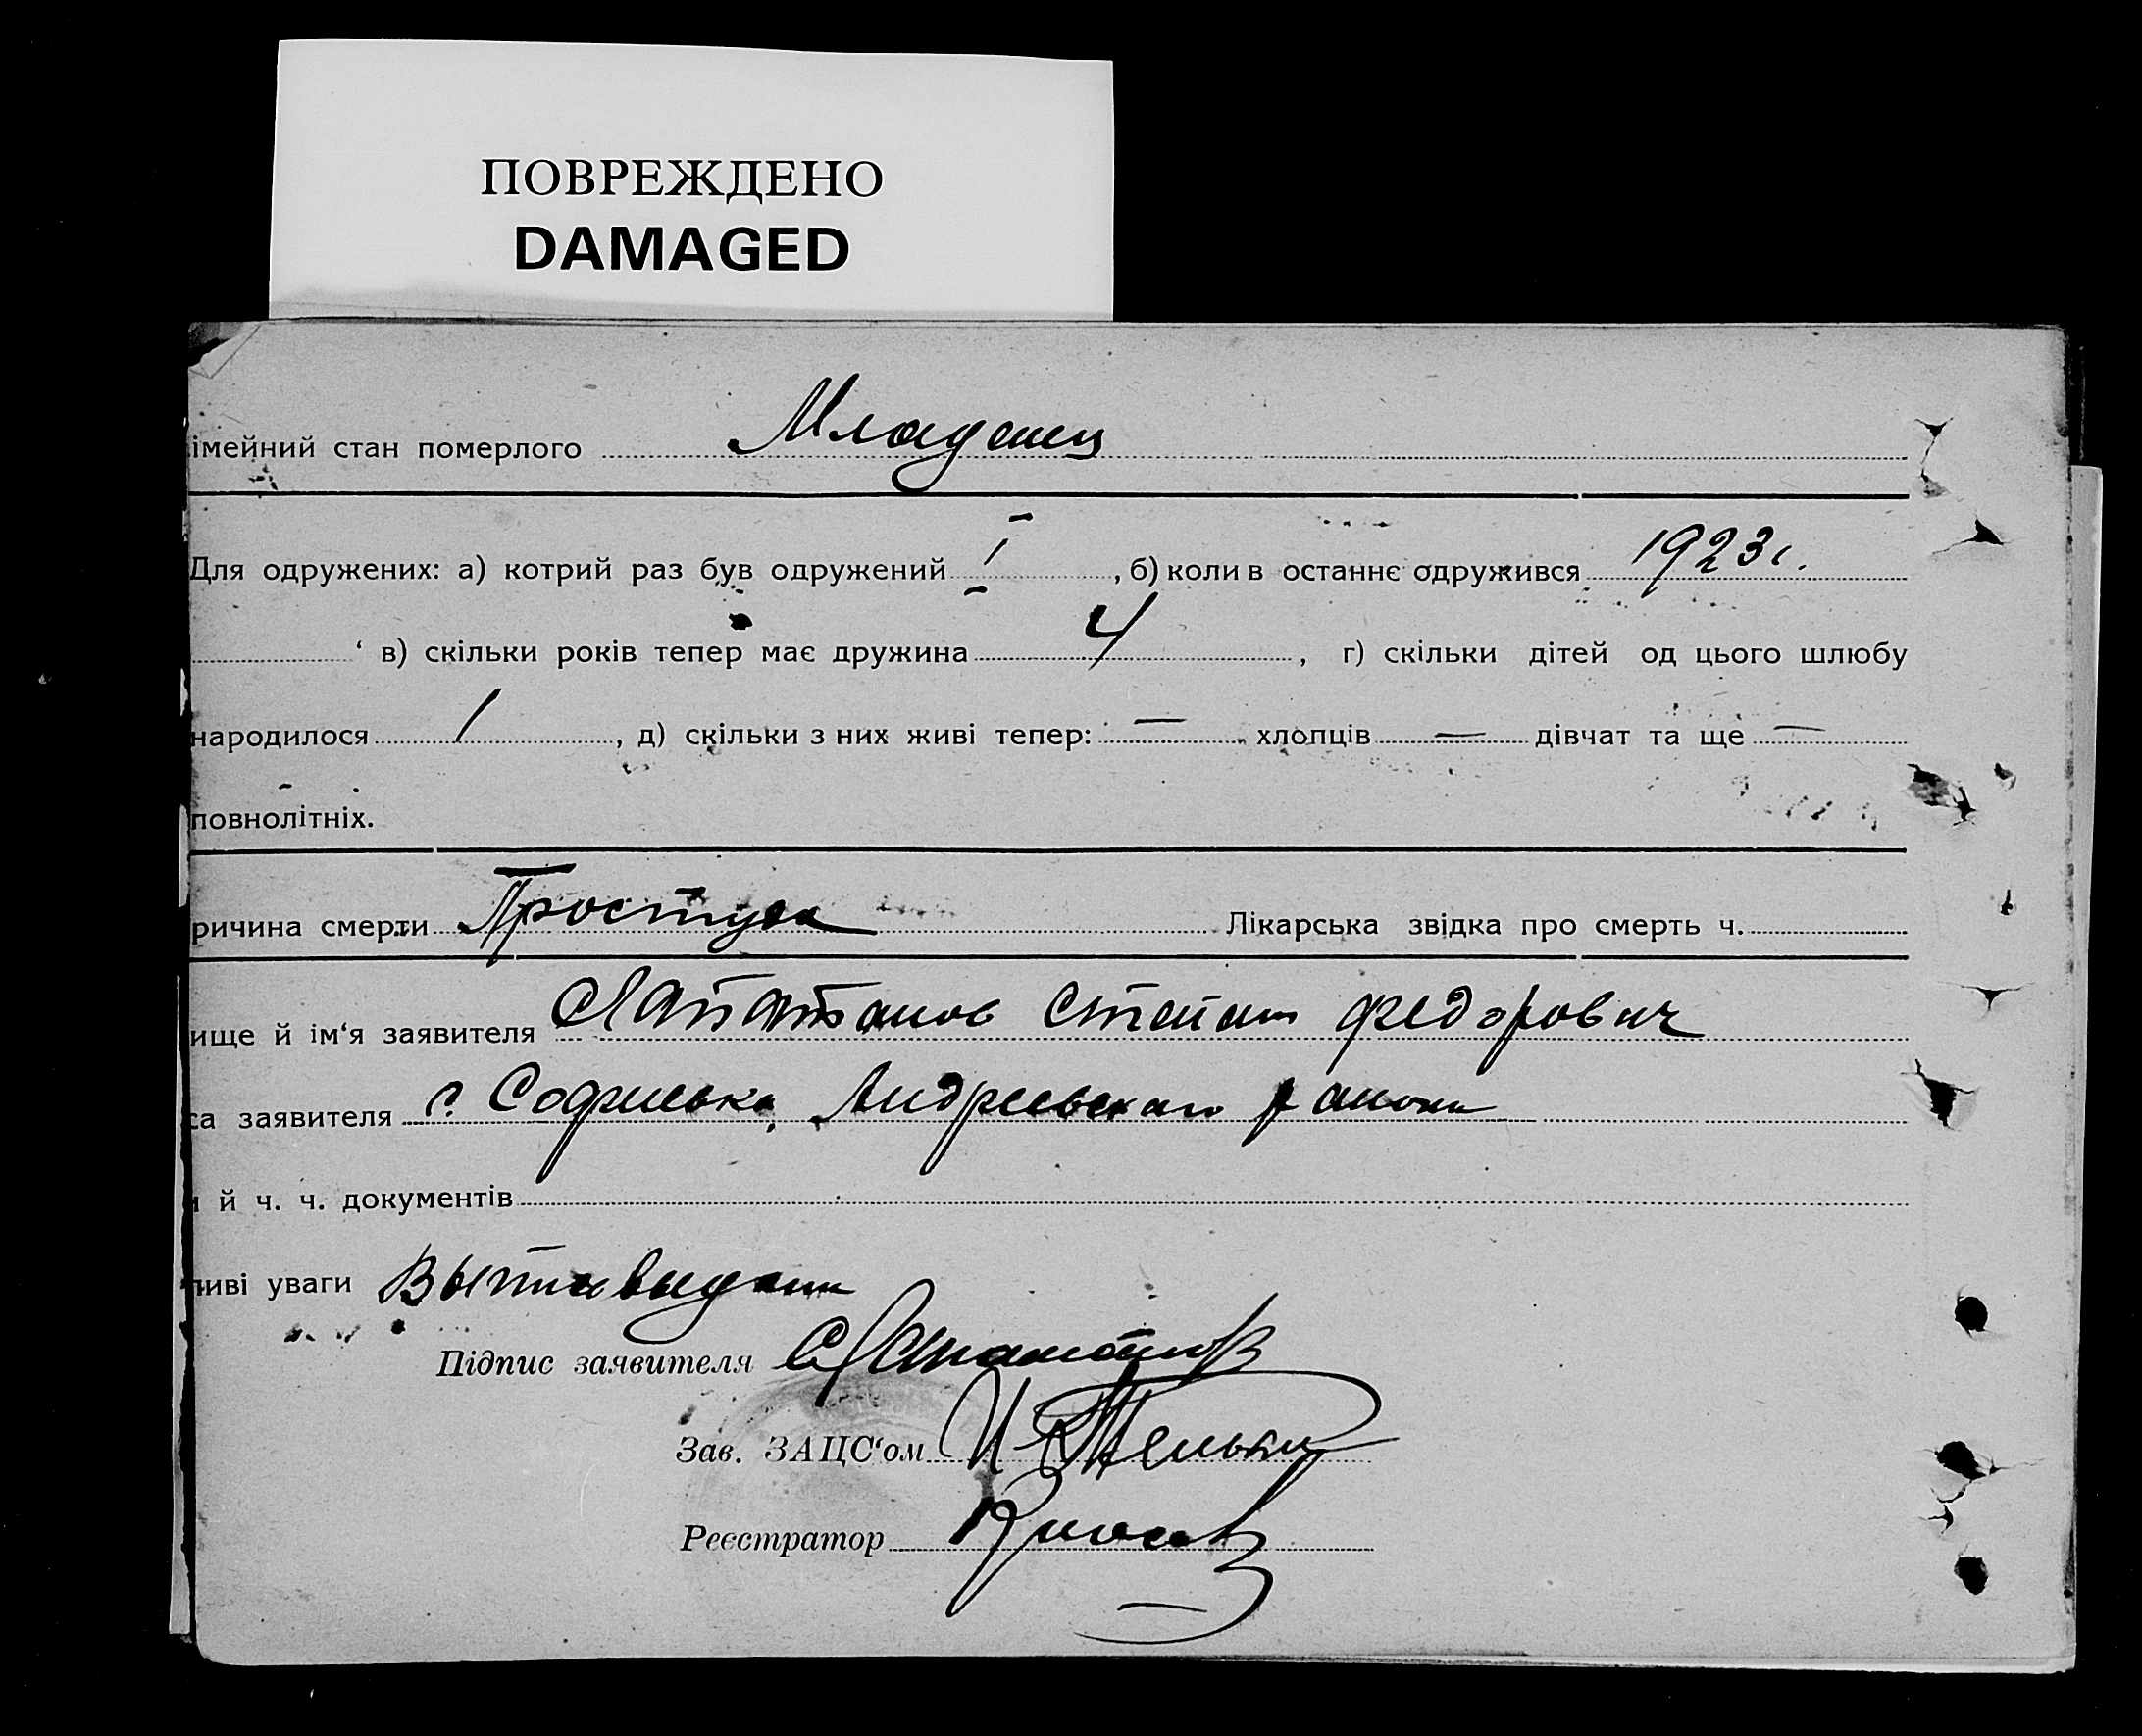 ПОВРЕЖДЕНО
DAMAGED
імейний стан померлого Младенец
Для одружених: а) котрий раз був одружений 1, б) коли в останнє одружився 1923 г.
в) скільки років тепер має дружина 4, г) скільки дітей од цього шлюбу
народилося 1, д) скільки з них живі тепер: — хлопців — дівчат та ще —
повнолітніх.
ричина смерти Простуда Лікарська звідка про смерть ч.
ище й ім‘я заявителя Степан Федорович
са заявителя с. Софиевка, Андреевского района
й ч. ч. документів
ливі уваги
Підпис заявителя
Зав. ЗАЦС‘ом
Реєстратор